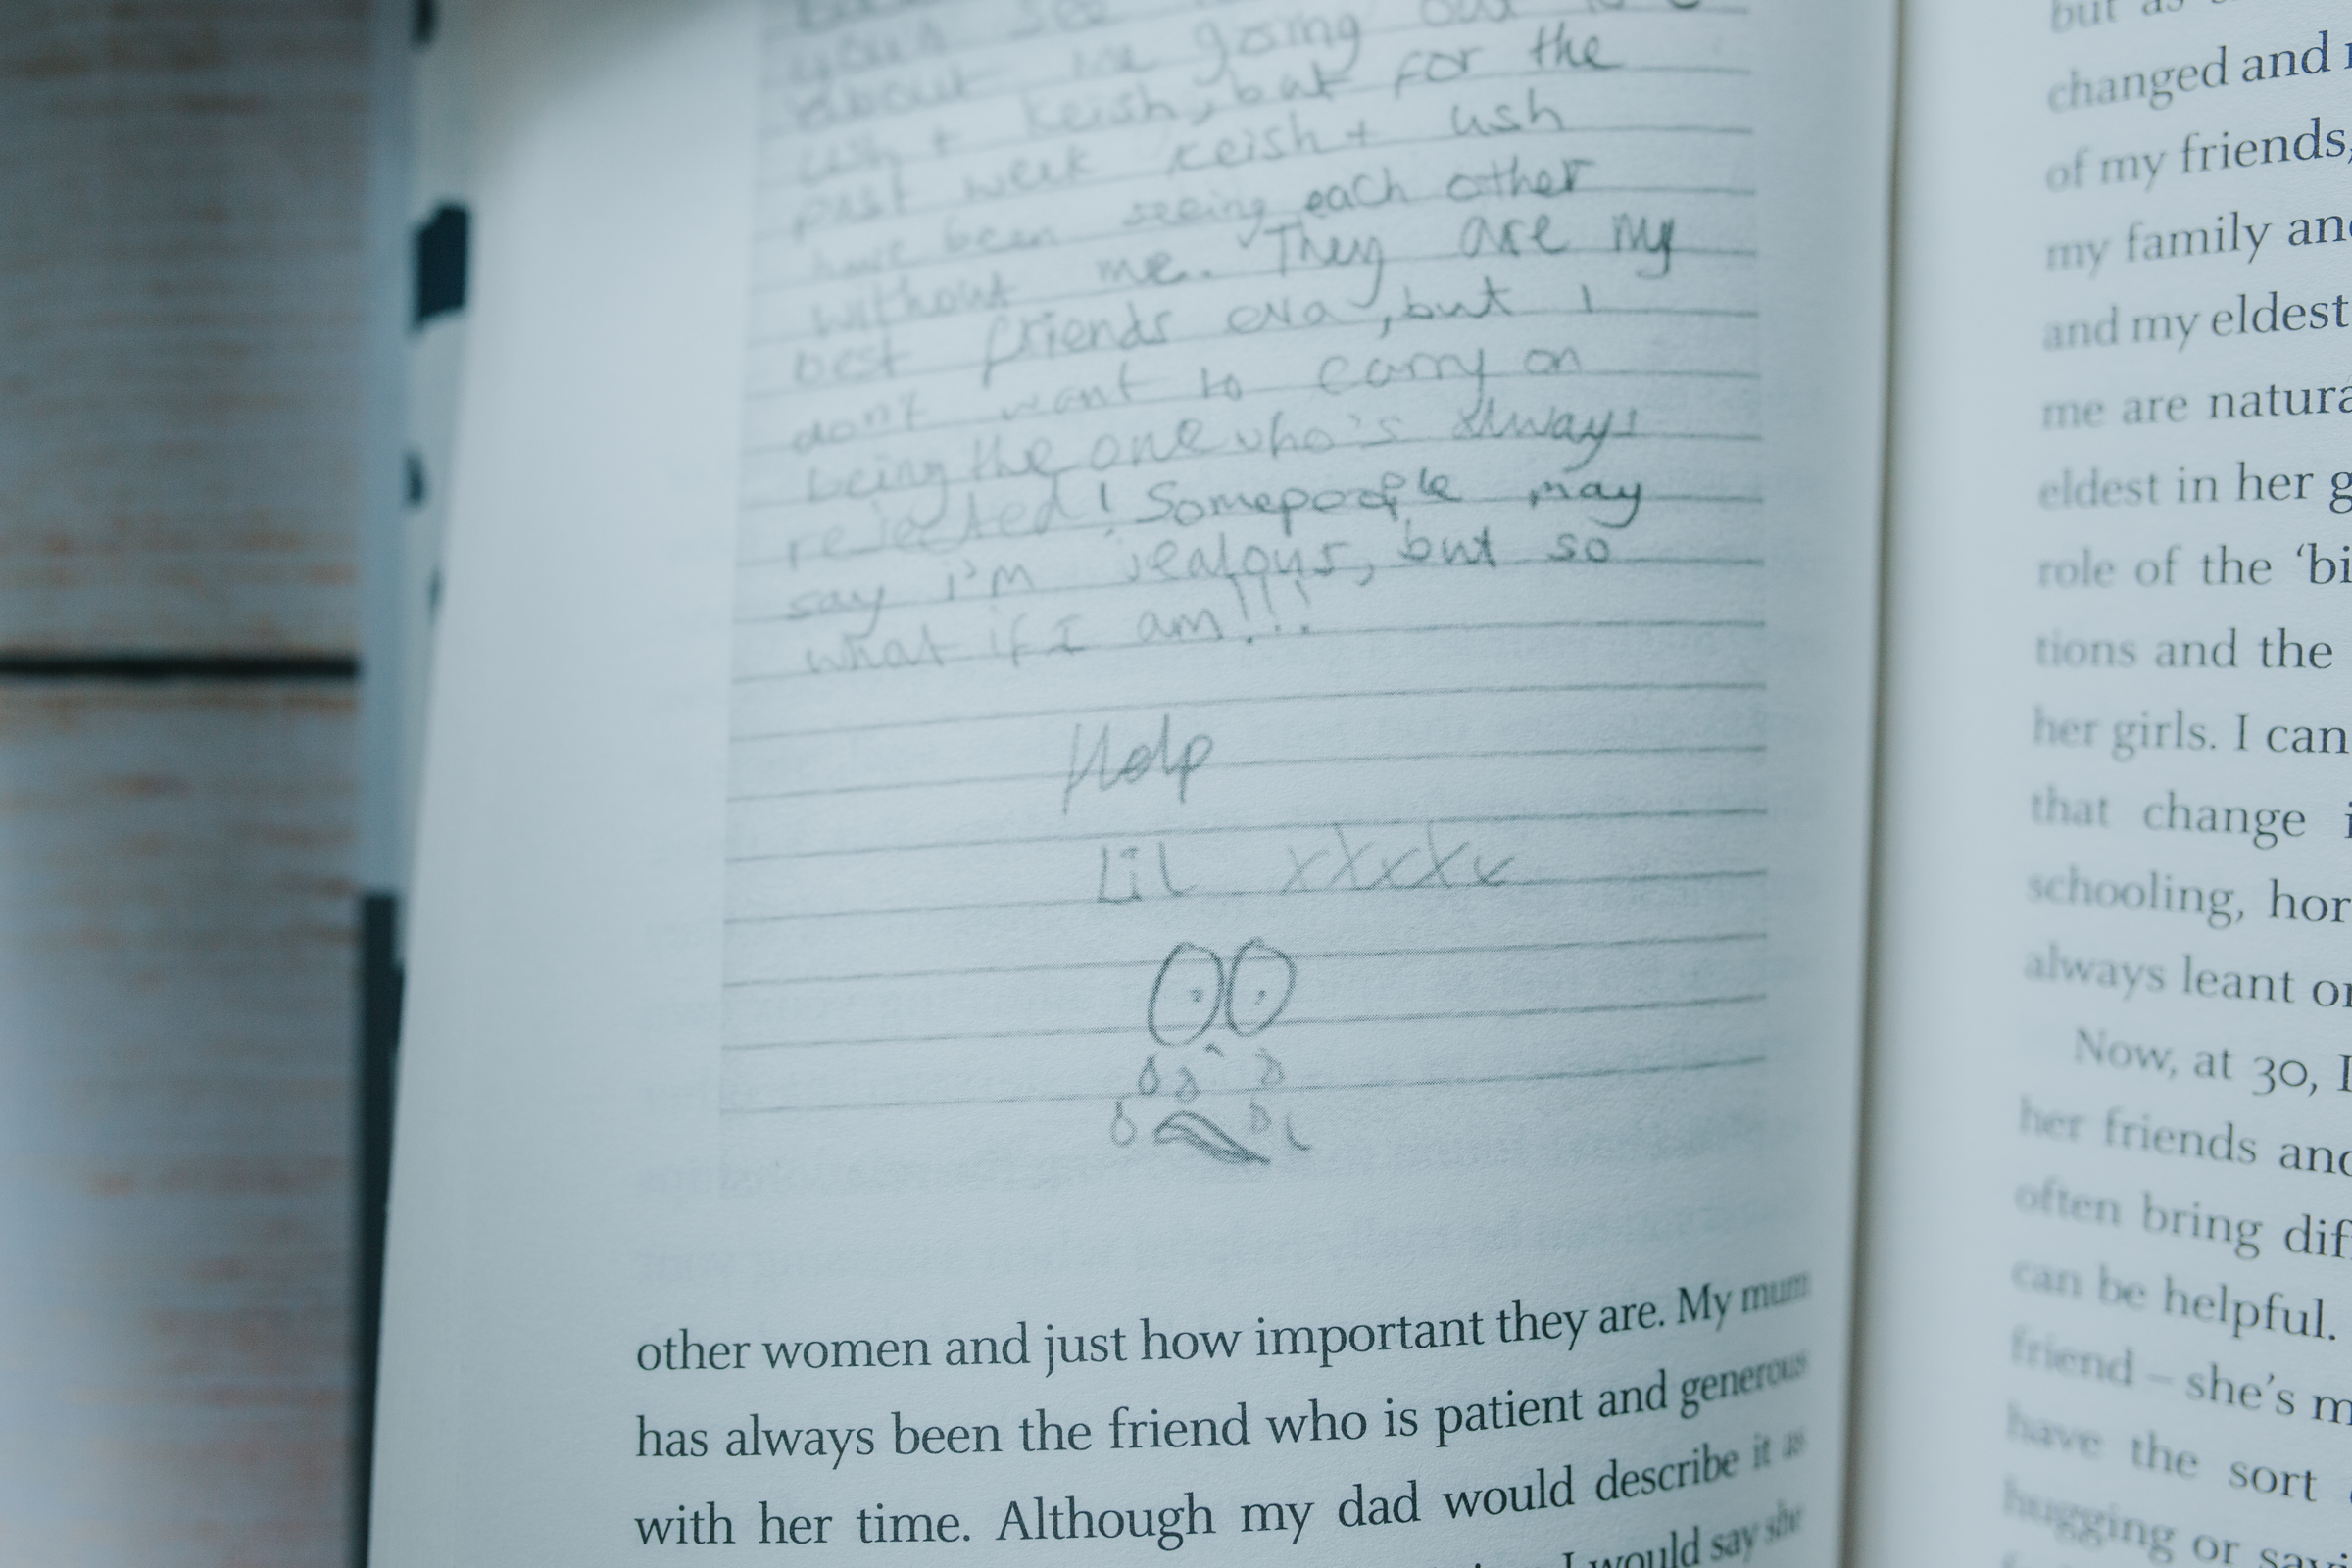 you see
about me going out
ush + Keish, but for the
past week Keish + ush
have been seeing each other
without me. They are my
best friends eva, but I
don't want to carry on
being the one who's always
rejected! Somepeople may
say i'm jealous, but so
what if I am!!!
Help
Lil xxxxx
other women and just how important they are. My mum
has always been the friend who is patient and generous
with her time. Although my dad would describe it as
I would say she
but as
changed and
of my friends,
my family and
and my eldest
me are natura
eldest in her g
role of the ‘bi
tions and the
her girls. I can
that change i
schooling, hor
always leant on
Now, at 30, I
her friends and
often bring diff
can be helpful.
friend – she’s m
have the sort
hugging or say